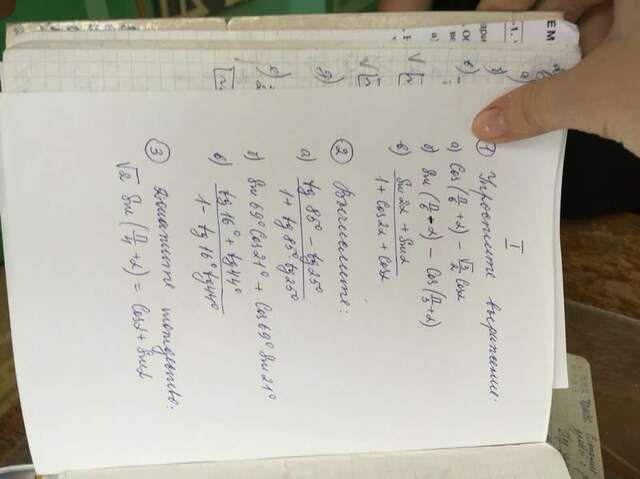 I
① Упростите выражение:
а) Cos(π/6 + α) - √3/2 Cosα
б) Sin(π/6 - α) - Cos(π/3 + α)
в) Sin2α + Sinα / 1 + Cos2α + Cosα
② Вычислите:
а) tg85° - tg25° / 1 + tg85° tg25°
б) Sin69° Cos21° + Cos69° Sin21°
в) tg16° + tg44° / 1 - tg16° tg44°
③ Докажите тождество:
√2 Sin(π/4 + α) = Cosα + Sinα